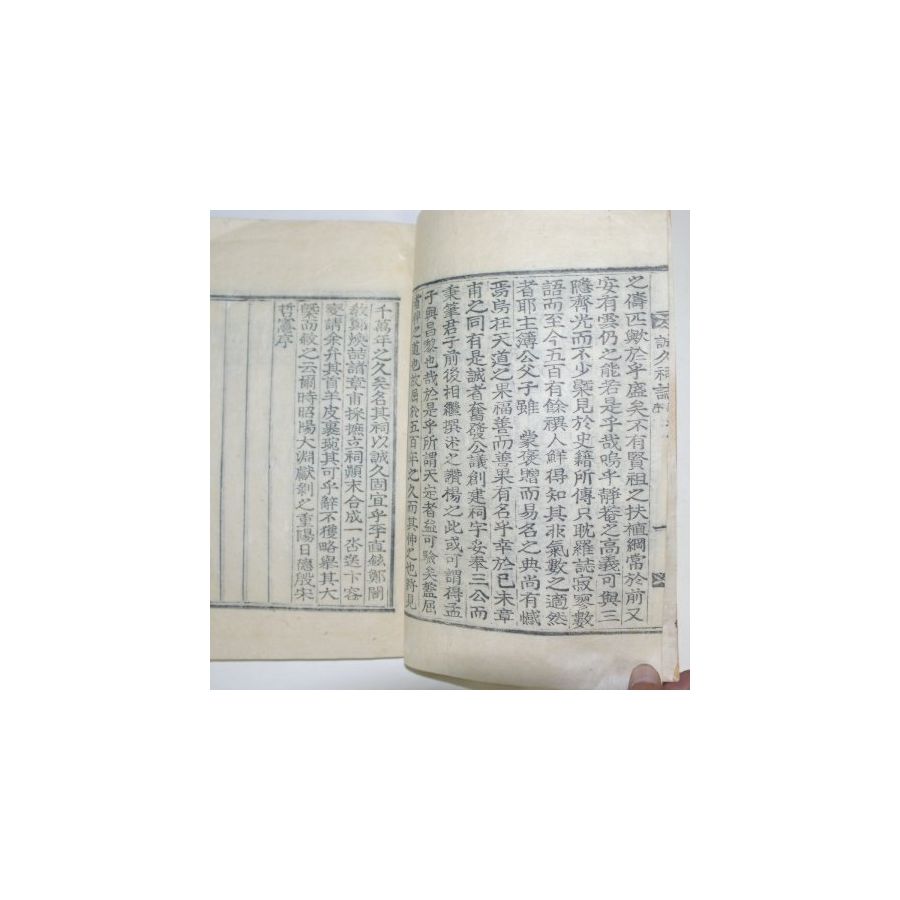 誠久祠誌 序
之儔匹歟於乎盛矣不有賢祖之扶植綱常於前又
安有雲仍之能若是乎哉嗚乎靜菴之高義可與三
隱齊光而不少槩見於史籍所傳只耽羅誌寂寥數
語而至今五百有餘禩人鮮得知其氣數之適然
者耶主簿公父子雖 蒙褒贈而易名之典尚有憾
焉烏在天道之果福善而善果有名乎幸於已未章
甫之同有是誠者奮發公議創建祠宇妥奉三公而
秉筆君子前後相繼撰述之讚楊之此或可謂得孟
子興昌黎也哉於是乎所謂天定者益可驗矣盖屈
者伸之道也故屈於五百年之久而其伸之也將見
千萬年之久矣名其祠以誠久固宜乎李直鉉鄭闇
教鄭煥喆諸章甫採摭立祠顛末合成一呇送卞容
燮請余弁其首羊皮裏琬其可乎辭不獲略舉其大
槩而敘之云爾時昭陽大淵獻剝之重陽日德殷宋
哲憲序